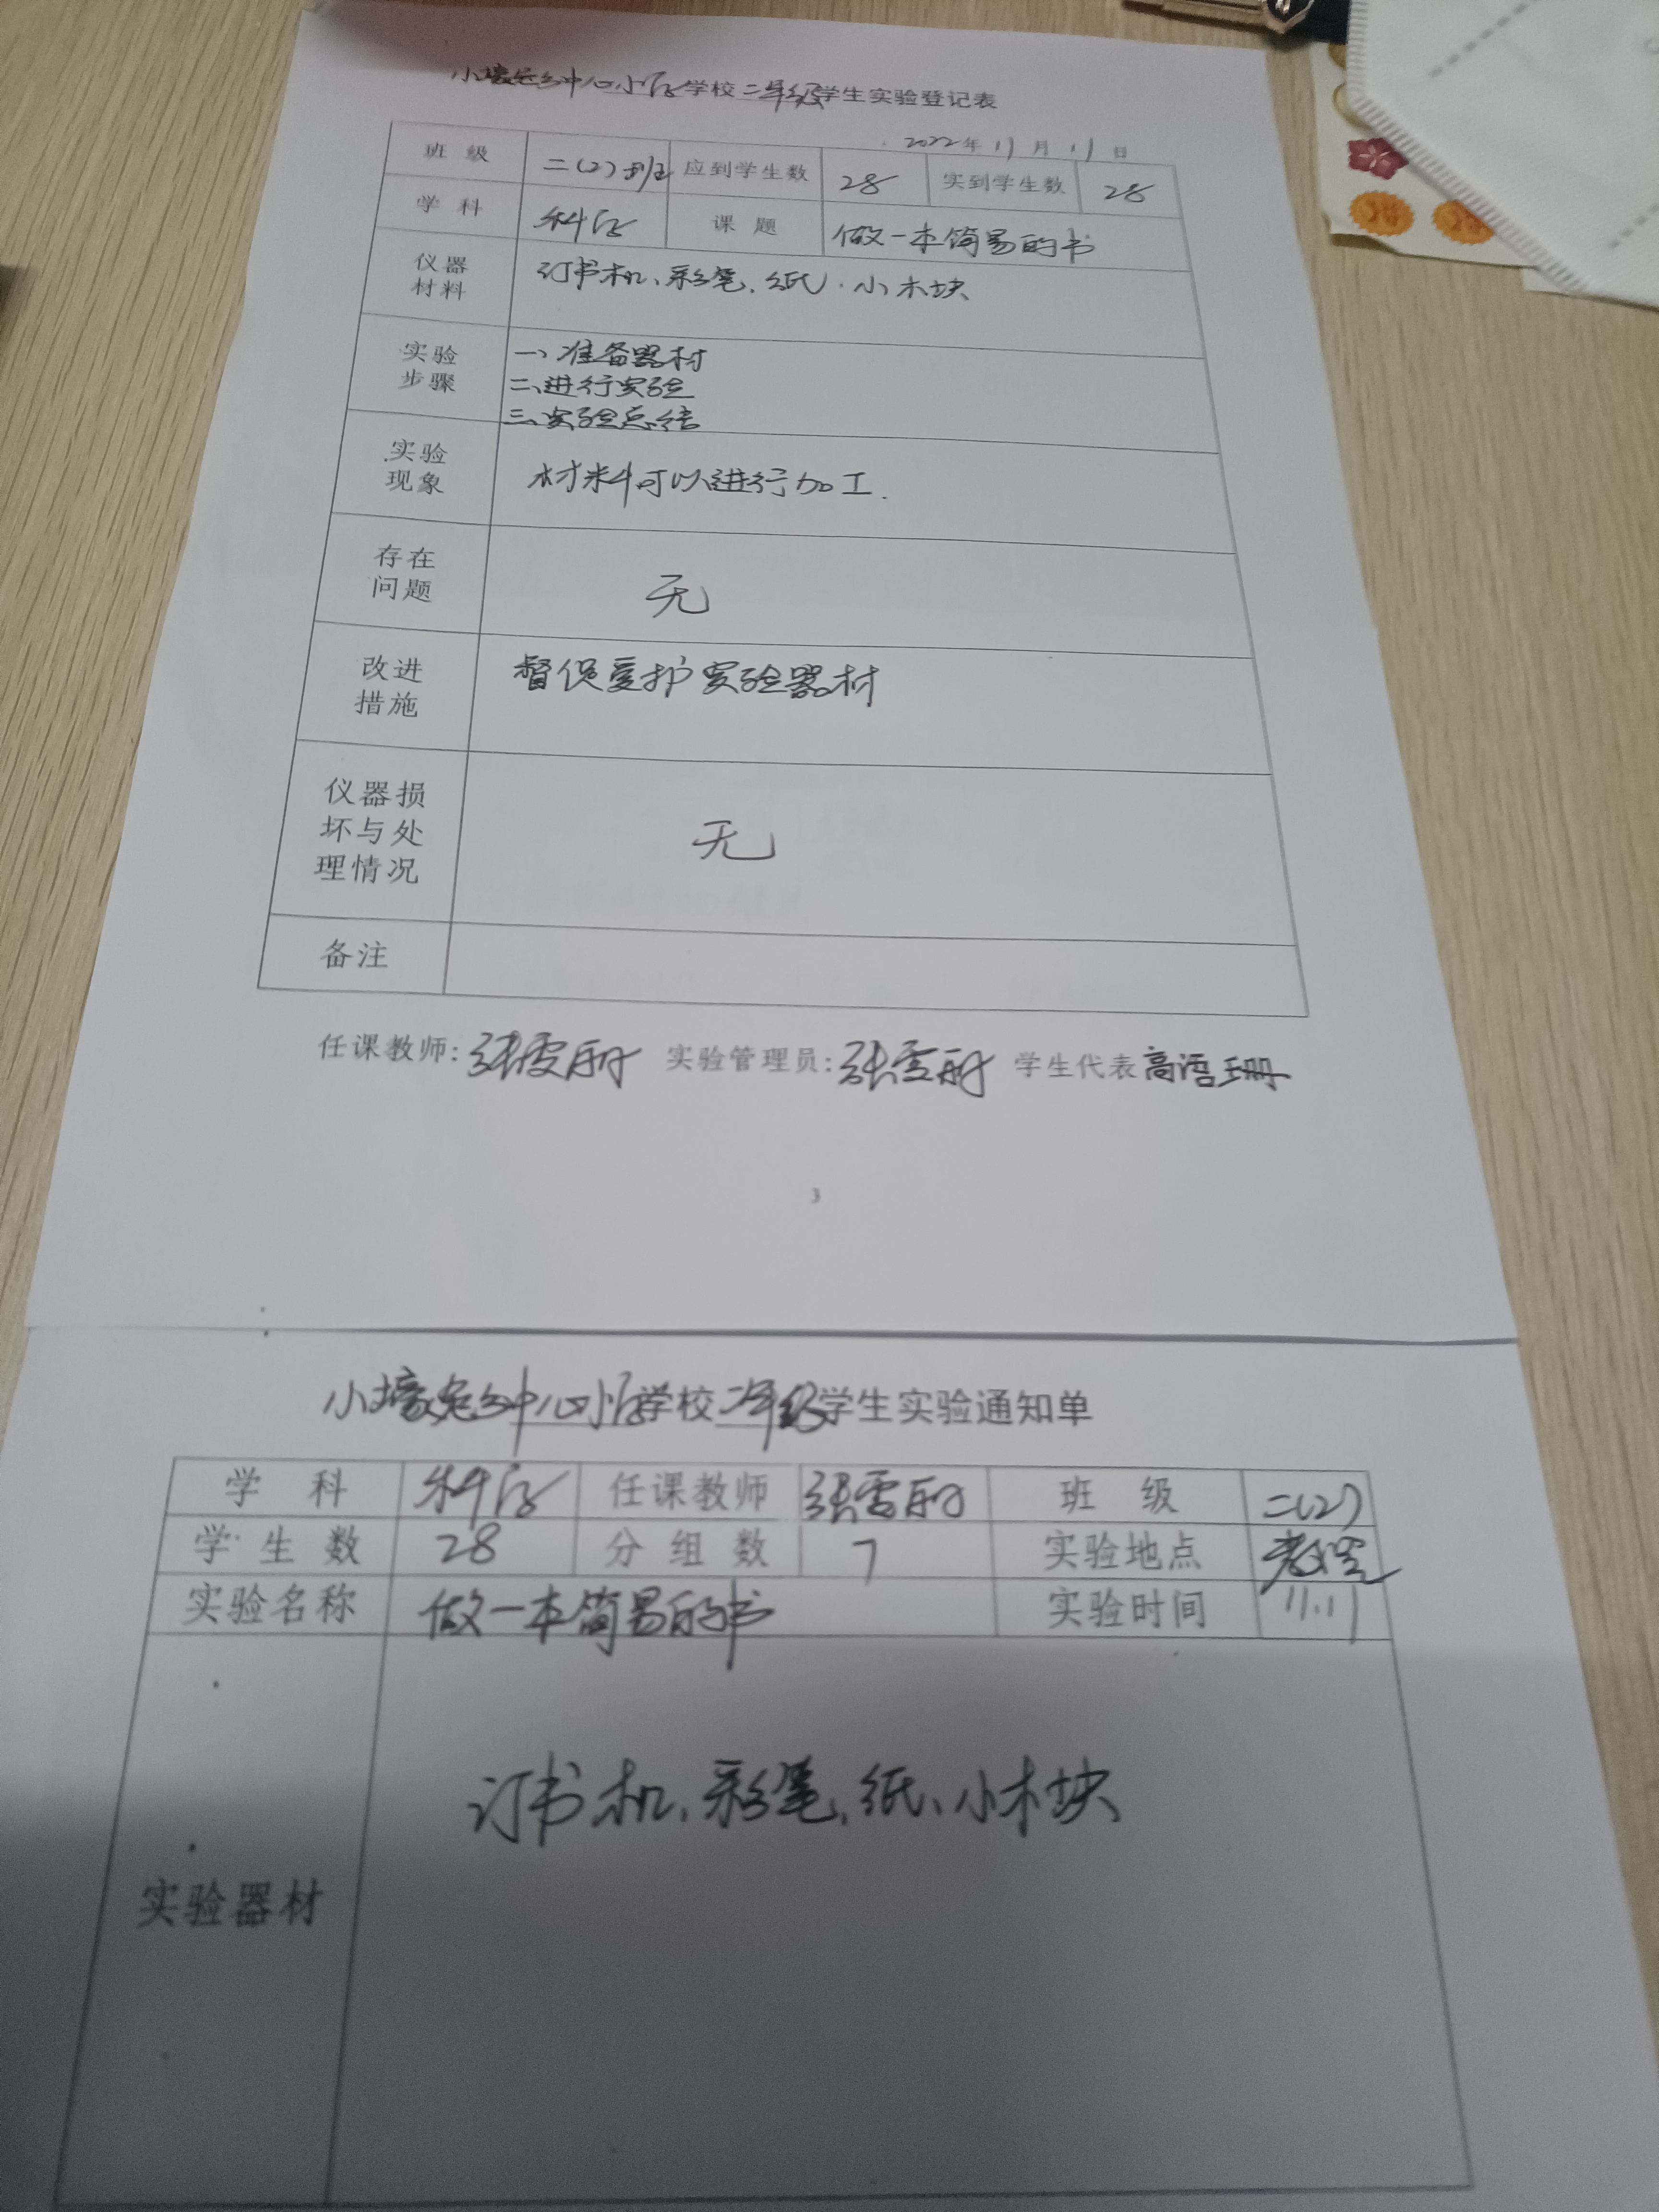 小壕兔乡中心小学学校二年级学生实验登记表
2022年11月11日
班级 二(2)班 应到学生数 28 实到学生数 28
学科 科学 课题 做一本简易的书
仪器材料 订书机、彩笔、纸、小木块
实验步骤 一、准备器材
二、进行实验
三、实验总结
实验现象 材料可以进行加工.
存在问题 无
改进措施 督促爱护实验器材
仪器损坏与处理情况 无
备注
任课教师: 张雯丽 实验管理员: 张雯丽 学生代表 高语珊
3
小壕兔乡中心小学学校二年级学生实验通知单
学科 科学 任课教师 张雯丽 班级 二(2)
学生数 28 分组数 7 实验地点 教室
实验名称 做一本简易的书 实验时间 11.11
实验器材 订书机、彩笔、纸、小木块